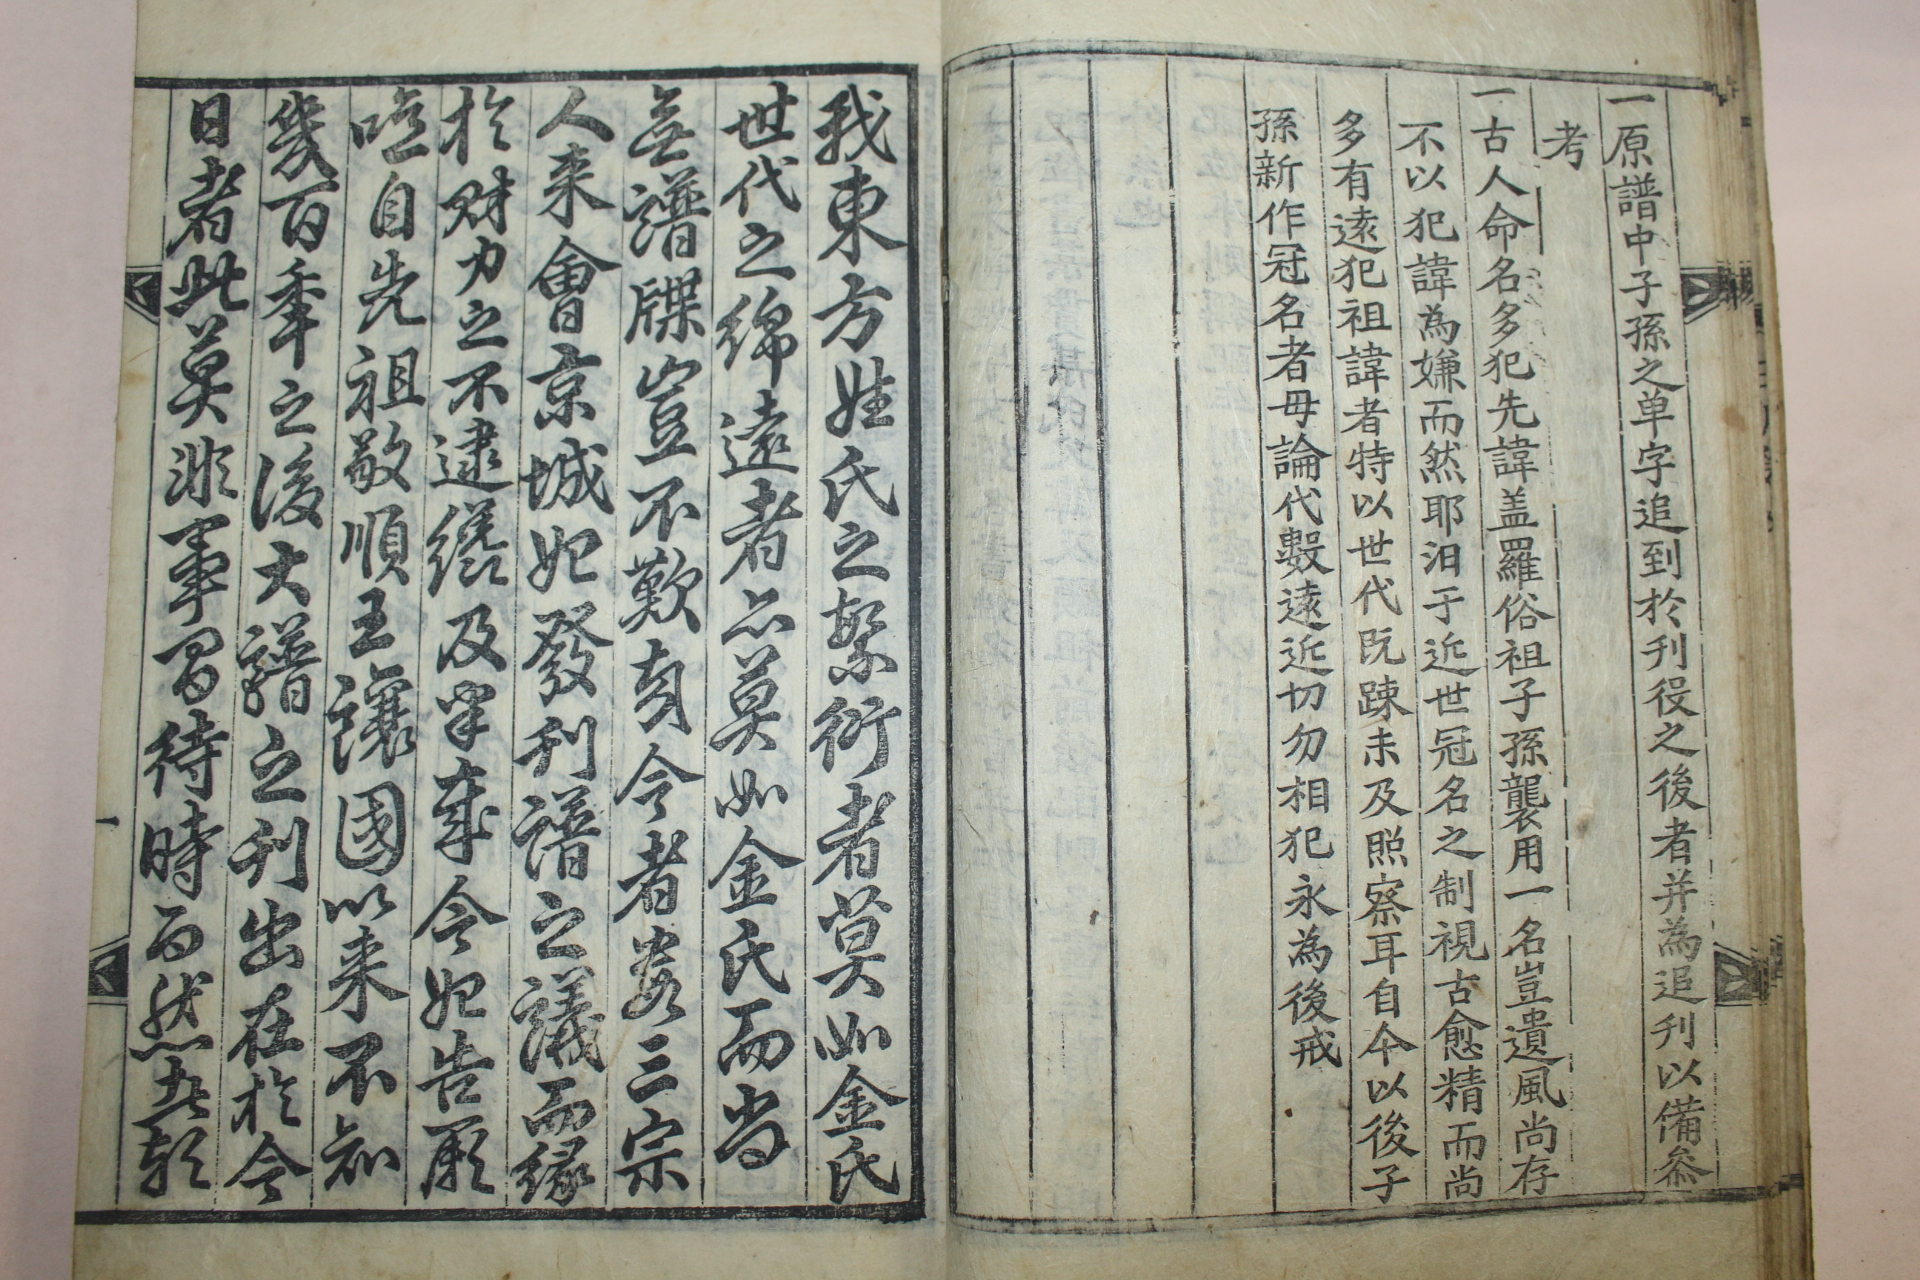 一原譜中子孫之単字追到於刊役之後者并為追刊以備叅
考
一古人命名多犯先諱盖羅俗祖子孫襲用一名豈遺風尚存
不以犯諱為嫌而然耶汨于近世冠名之制視古愈精而尚
多有逺犯祖諱者特以世代既踈未及照察耳自今以後子
孫新作冠名者毋論代數逺近切勿相犯永為後戒
我東方姓氏之繁衍者莫如金氏
世代之綿遠者亦莫如金氏而尚
無譜牒豈不歎哉今者婁三宗
人来會京城始發刊譜之議而緣
於財力之不逮纔及半歲今始告厥
噫自先祖敬順王讓國以来不知
幾百年之後大譜之刊出在於今
日者此莫非事固待時而然赴都